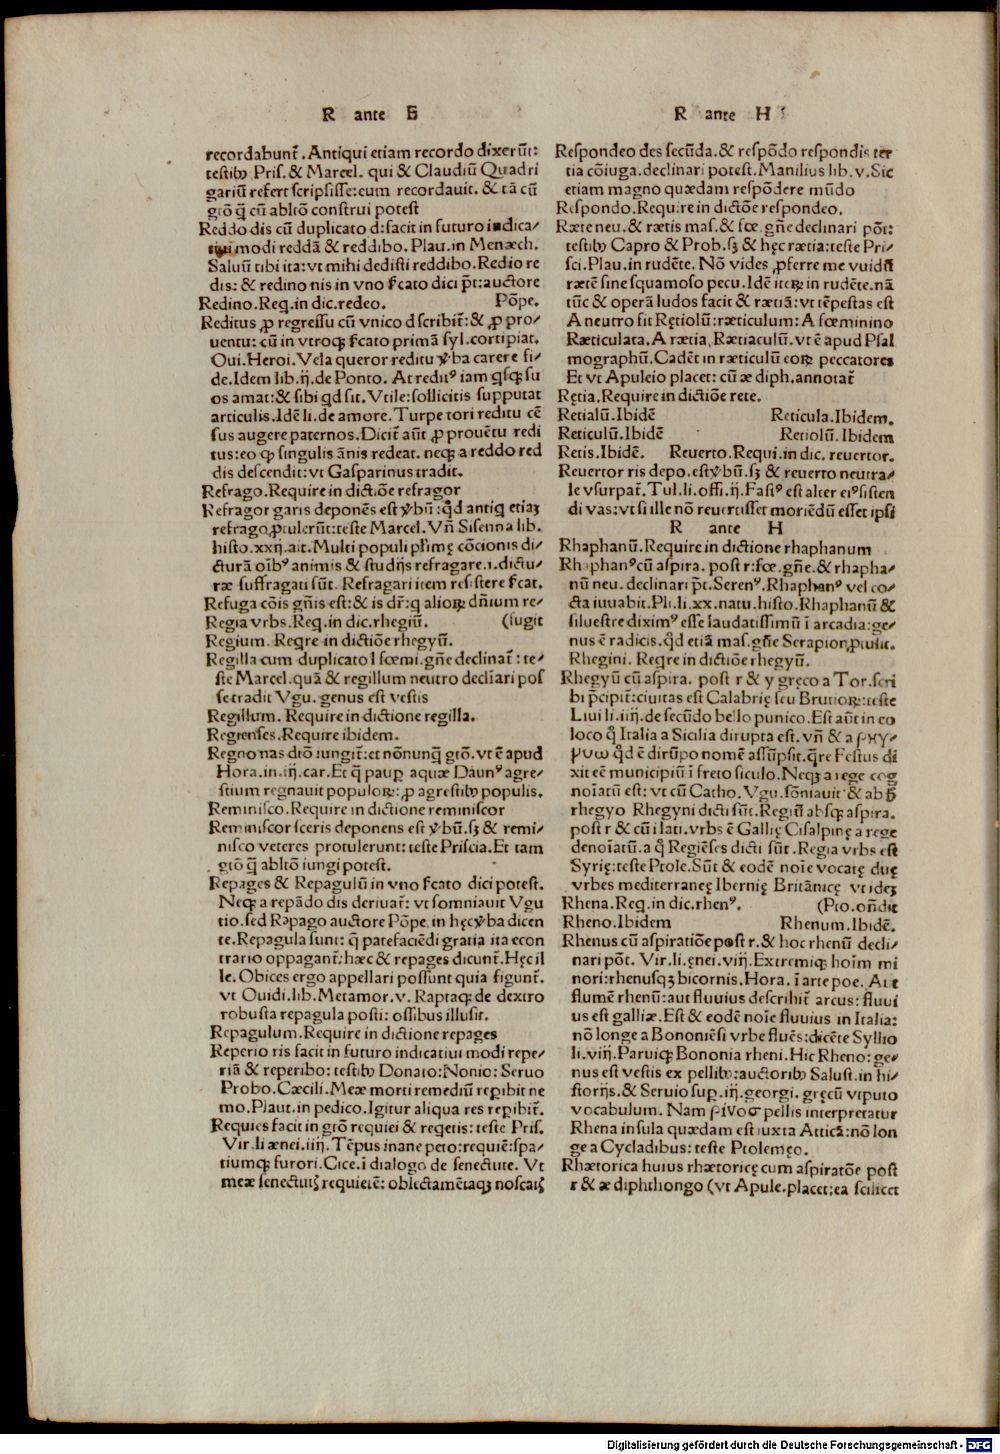 R ante E
recordabunt̄. Antiqui etiam recordo dixerūt:
testibꝰ Pris. & Marcel. qui & Claudiū Quadri
gariū refert scripsisse: eum recordauit. & tā cū
gtō q̄ cū abltō construi potest
Reddo dis cū duplicato d: facit in futuro indica/
tiui modi reddā & reddibo. Plau. in Menæch.
Saluū tibi ita: vt mihi dedisti reddibo. Redio re
dis: & redino nis in vno s̄cato dici p̄t: auctore
Redino. Req. in dic. redeo. Pōpe.
Reditus ꝓ regressu cū vnico d scribit̄: & ꝓ pro/
uentu: cū in vtroqꝫ s̄cato primā syl. cortipiat.
Oui. Heroi. Vela queror reditu v̄ba carere fi/
de. Idem lib. ij. de Ponto. At reditꝰ iam qsqꝫ su
os amat: & sibi qd sit. Vtile: sollicitis supputat
articulis. Idē li. de amore. Turpe tori reditu cē
sus augere paternos. Dicit̄ aūt ꝓ prouētu redi
tus: eo qꝫ singulis ānis redeat. neqꝫ a reddo red
dis descendit: vt Gasparinus tradit.
Refrago. Require in dictiōe refragor
Refragor garis deponēs est v̄bū: qd̄ antiq etiaꝫ
refrago ꝓtulerūt: teste Marcel. Vn̄ Sisenna lib.
histo. xxij. ait. Multi populi plīmę cōcionis di/
cturā oībꝰ animis & studijs refragare. i. dictu/
ræ suffragati sūt. Refragari item resistere s̄cat.
Refuga cōis gn̄is est: & is dr̄: q alioꝝ dn̄ium re/
Regia vrbs. Req. in dic. rhegiū. (fugit
Regium. Reqre in dictiōe rhegyū.
Regilla cum duplicato l fœmi. gn̄e declinat̄: te/
ste Marcel. quā & regillum neutro decliari pos
se tradit Vgu. genus est vestis
Regillum. Require in dictione regilla.
Regienses. Require ibidem.
Regno nas dtō iungit̄: et nōnunq̄ gtō. vt ē apud
Hora. in. iij. car. Et q̄ paup̲ aquæ Daunꝰ agre/
stium regnauit populoꝝ: ꝓ agrestibꝰ populis.
Reminisco. Require in dictione reminiscor
Reminiscor sceris deponens est v̄bū. sꝫ & remi/
nisco veteres protulerunt: teste Priscia. Et tam
gtō q̄ abltō iungi potest.
Repages & Repagulū in vno s̄cato dici potest.
Neqꝫ a repādo dis deriuat̄: vt somniauit Vgu
tio. sed Repago auctore Pōpe. in hęc v̄ba dicen
te. Repagula sunt: q̄ patefaciēdi gratia ita econ
trario oppagant̄: hæc & repages dicunt̄. Hęc il
le. Obices ergo appellari possunt quia figunt̄.
vt Ouidi. lib. Metamor. v. Raptaqꝫ de dextro
robusta repagula posti: ossibus illusit.
Repagulum. Require in dictione repages
Reperio ris facit in futuro indicatiui modi repe/
riā & reperibo: testibꝰ Donato: Nonio: Seruo
Probo. Cæcili. Meæ morti remediū rep̲ibit ne
mo. Plaut. in pedico. Igitur aliqua res rep̲ibit̄.
Requies facit in gtō requiei & regetis: teste Pris.
Vir. li ænei. iiij. Tēpus inane peto: requiē: spa/
tiumqꝫ furori. Cice. ī dialogo de senectute. Vt
meæ senectutꝭ requietē: oblectamētaqꝫ noscatꝭ
R ante H
Respondeo des secūda. & respōdo respondis ter
tia cōiuga. declinari potest. Manilius lib. v. Sic
etiam magno quædam respōdere mūdo
Respondo. Require in dictōe respondeo.
Ræte neu. & rætis mas. & fœ. gn̄e declinari pōt:
testibꝰ Capro & Prob. sꝫ & hęc rætia: teste Pri/
sci. Plau. in rudēte. Nō vides ꝓferre me vuidū
rætē sine squamoso pecu. Idē iteꝝ in rudēte. nā
tūc & operā ludos facit & rætiā: vt tēpestas est
A neutro fit Rętiolū: ræticulum: A fœminino
Ræticulata. A rætia, Rætiaculū. vt ē apud Psal
mographū. Cadēt in ræticulū eoꝝ peccatores
Et vt Apuleio placet: cū æ diph. annotat̄
Rętia. Require in dictiōe rete.
Retialū. Ibidē Reticula. Ibidem.
Reticulū. Ibidē Retiolū. Ibidem
Retis. Ibidē. Reuerto. Requi. in dic. reuertor.
Reuertor ris depo. est v̄bū. sꝫ & reuerto neutra/
le vsurpat̄. Tul. li. offi. ij. Fasiꝰ est alter eiꝰ sisten
di vas: vt si ille nō reuertisset moriēdū esset ipsi
R ante H
Rhaphanū. Require in dictione rhaphanum
Rhaphanꝰ cū aspira. post r: fœ. gn̄e. & rhapha/
nū neu. declinari p̄t. Serenꝰ. Rhaphanꝰ vel co/
cta iuuabit. Pli. li. xx. natu. histo. Rhaphanū &
siluestre diximꝰ esse laudatissimū ī arcadia: ge/
nus ē radicis. qd̄ etiā mas. gn̄e Serapion ꝓtulit.
Rhegini. Reqre in dictiōe rhegyū.
Rhegyū cū aspira. post r & y gręco a Tor. scri
bi p̄cipit̄: ciuitas est Calabrię seu Brutioꝝ: teste
Liui li. iiij. de secūdo bello punico. Est aūt in eo
loco q̄ Italia a Sicilia dirupta est. vn̄ & a ρηγ/
νυω qd̄ ē dirūpo nomē assūpsit. qre Festus di
xit eē municipiū ī freto siculo. Neqꝫ a rege cog
noīatū est: vt cū Catho. Vgu. sōniauit & ab h̄
rhegyo Rhegyni dicti sūt. Regiū absqꝫ aspira.
post r & cū i lati. vrbs ē Gallię Cisalpinę a rege
denoīatū. a q̄ Regiēses dicti sūt. Regia vrbs est
Syrię: teste Ptole. Sūt & eodē noīe vocatę duę
vrbes mediterraneę Ibernię Britānicę vt ideꝫ
Rhena. Req. in dic. rhenꝰ. (Pto. on̄dit
Rheno. Ibidem Rhenum. Ibidē.
Rhenus cū aspiratiōe post r. & hoc rhenū decli/
nari pōt. Vir. li. ęnei. viij. Extremiqꝫ hoīm mi
nori: rhenusqꝫ bicornis. Hora. ī arte poe. Aut
flumē rhenū: aut fluuius describit̄ arcus: fluui
us est galliæ. Est & eodē noīe fluuius in Italia:
nō longe a Bononiēsi vrbe fluēs: dicēte Syllio
li. viij. Paruiqꝫ Bononia rheni. Hic Rheno: ge/
nus est vestis ex pellibꝰ: auctoribꝰ Salust. in hi/
storijs. & Seruio sup̲. iij. georgi. gręcū vt puto
vocabulum. Nam ρίνοσ pellis interpretatur
Rhena insula quædam est iuxta Atticā: nō lon
ge a Cycladibus: teste Ptolemęo.
Rhætorica huius rhætoricę cum aspiratōe post
r & æ diphthongo (vt Apule. placet: ea scilicet
Digitalisierung gefördert durch die Deutsche Forschungsgemeinschaft - DFG